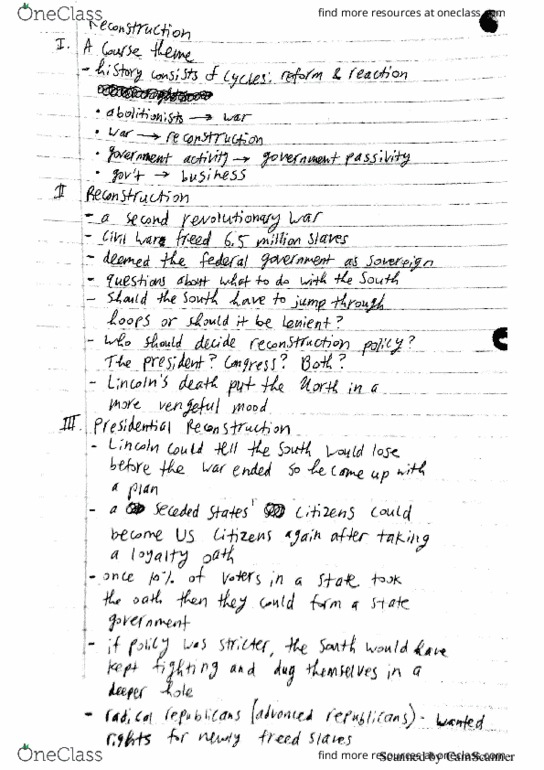 OneClass
find more resources at oneclass.com
Reconstruction
I. A Course theme
- history consists of cycles: reform & reaction
• abolitionists → war
• war → reconstruction
• government activity → government passivity
• gov't → business
II Reconstruction
- a second revolutionary war
- Civil War freed 6.5 million slaves
- deemed the federal government as sovereign
- questions about what to do with the South
- should the South have to jump through
hoops or should it be lenient?
- who should decide reconstruction policy?
The president? Congress? Both?
- Lincoln's death put the North in a
more vengeful mood
III. Presidential Reconstruction
- Lincoln could tell the South would lose
before the war ended so he come up with
a plan
- a seceded states' citizens could
become US citizens again after taking
a loyalty oath
- once 10% of voters in a state took
the oath then they could form a state
government
- if policy was stricter, the South would have
kept fighting and dug themselves in a
deeper hole
- radical republicans (advanced republicans) - wanted
rights for newly freed slaves
OneClass
find more resources at oneclass.com
Scanned by CamScanner